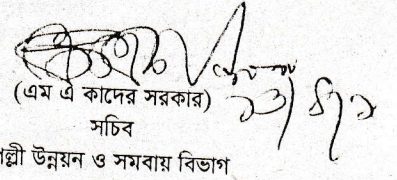 (এম এ কাদের সরকার)
সচিব
ল্লী উন্নয়ন ও সমবায় বিভাগ